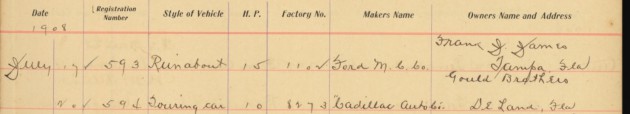 Date Registration Number Style of Vehicle H. P. Factory No. Makers Name Owners Name and Address
1908
Frank J. James
July 17 593 Runabout 15 1102 Ford M. C. Co. Tampa, Fla
Gould Brothers
20 594 Touring car 10 8273 Cadillac Auto Co. De Land, Fla